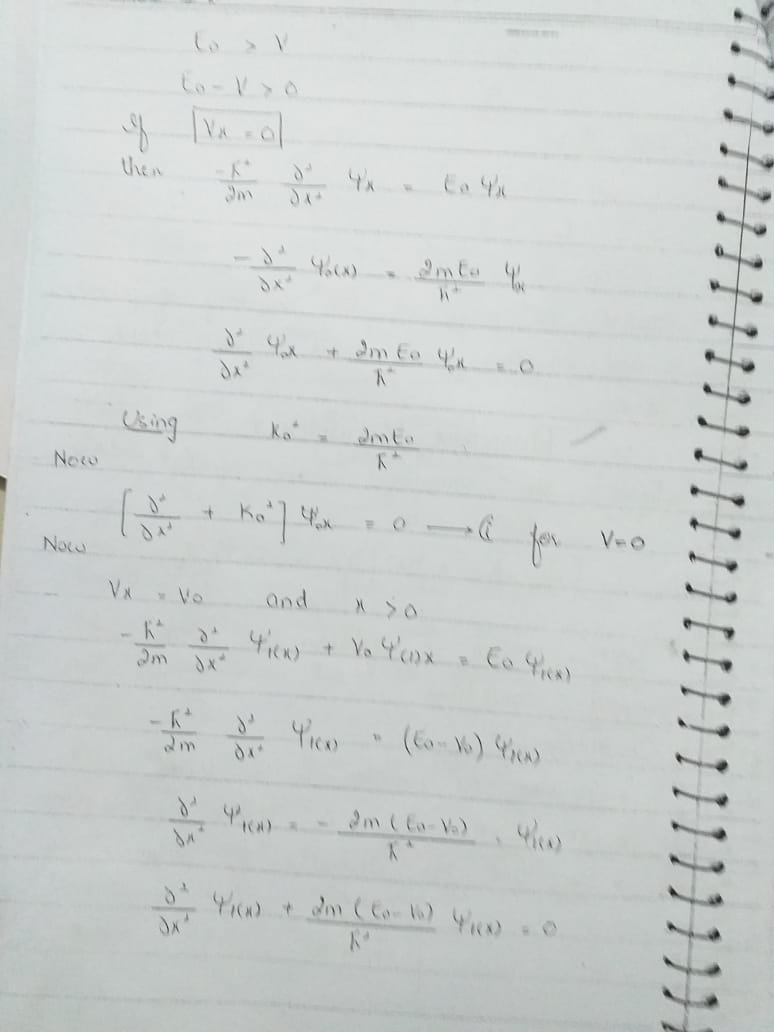 E₀ > V
E₀ - V > 0
If Vx = 0
then -ħ²/2m ∂²/∂x² Ψx = E₀ Ψx
-∂²/∂x² Ψ₀(x) = 2mE₀/ħ² Ψ₀x
∂²/∂x² Ψ₀x + 2mE₀/ħ² Ψ₀x = 0
Using K₀² = 2mE₀/ħ²
Now
[∂²/∂x² + K₀²] Ψ₀x = 0 → (i for V=0
Now
Vx = V₀ and x > 0
-ħ²/2m ∂²/∂x² Ψ₁(x) + V₀ Ψ(1)x = E₀ Ψ₁(x)
-ħ²/2m ∂²/∂x² Ψ₁(x) = (E₀-V₀) Ψ₁(x)
∂²/∂x² Ψ₁(x) = - 2m(E₀-V₀)/ħ² . Ψ₁(x)
∂²/∂x² Ψ₁(x) + 2m(E₀-V₀)/ħ² Ψ₁(x) = 0